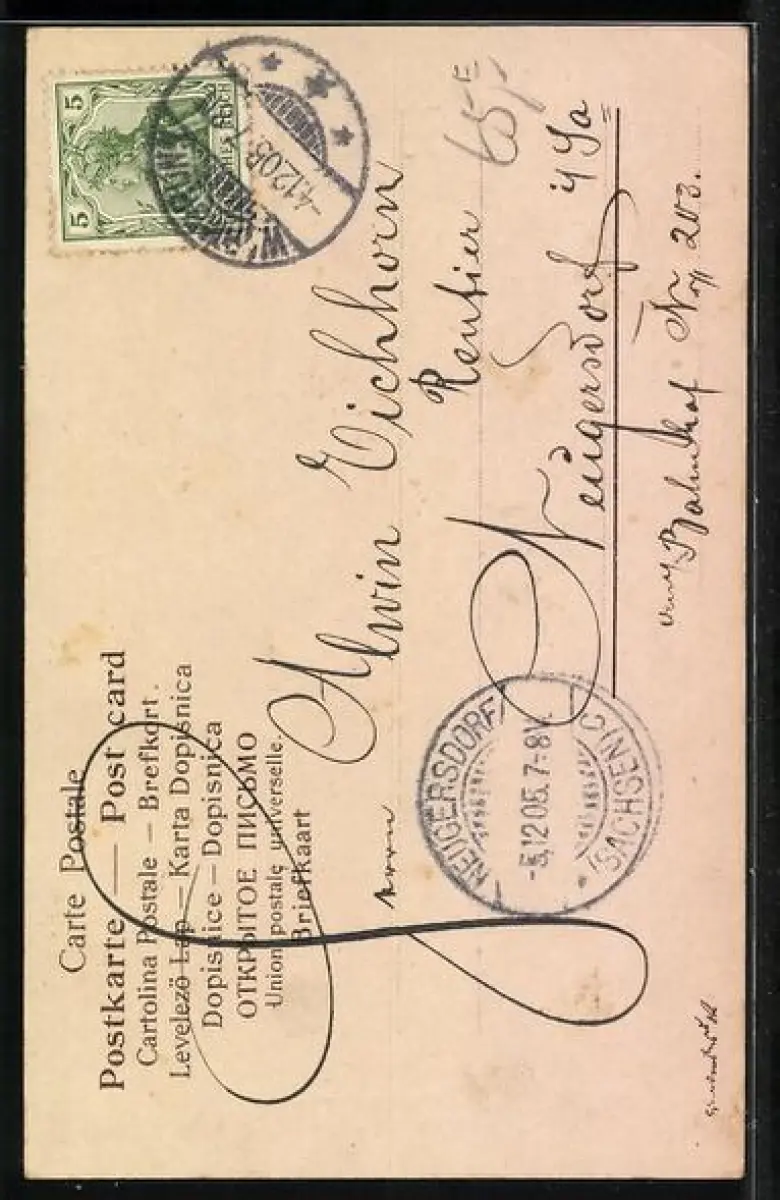 Carte Postale
Postkarte — Post card
Cartolina Postale — Brefkort.
Levelező Lap — Karta Dopisnica
Dopisnice — Dopisnica
ОТКРЫТОЕ ПИСЬМО
Union postale universelle.
Briefkaart
5 5
REICH
-4.12.05.
Herrn Alwin Eichhorn
Rentier
Neugersdorf i/Sa
Bahnhof Nr 203.
NEUGERSDORF
-5.12.05. 7-8V.
(SACHSEN) C